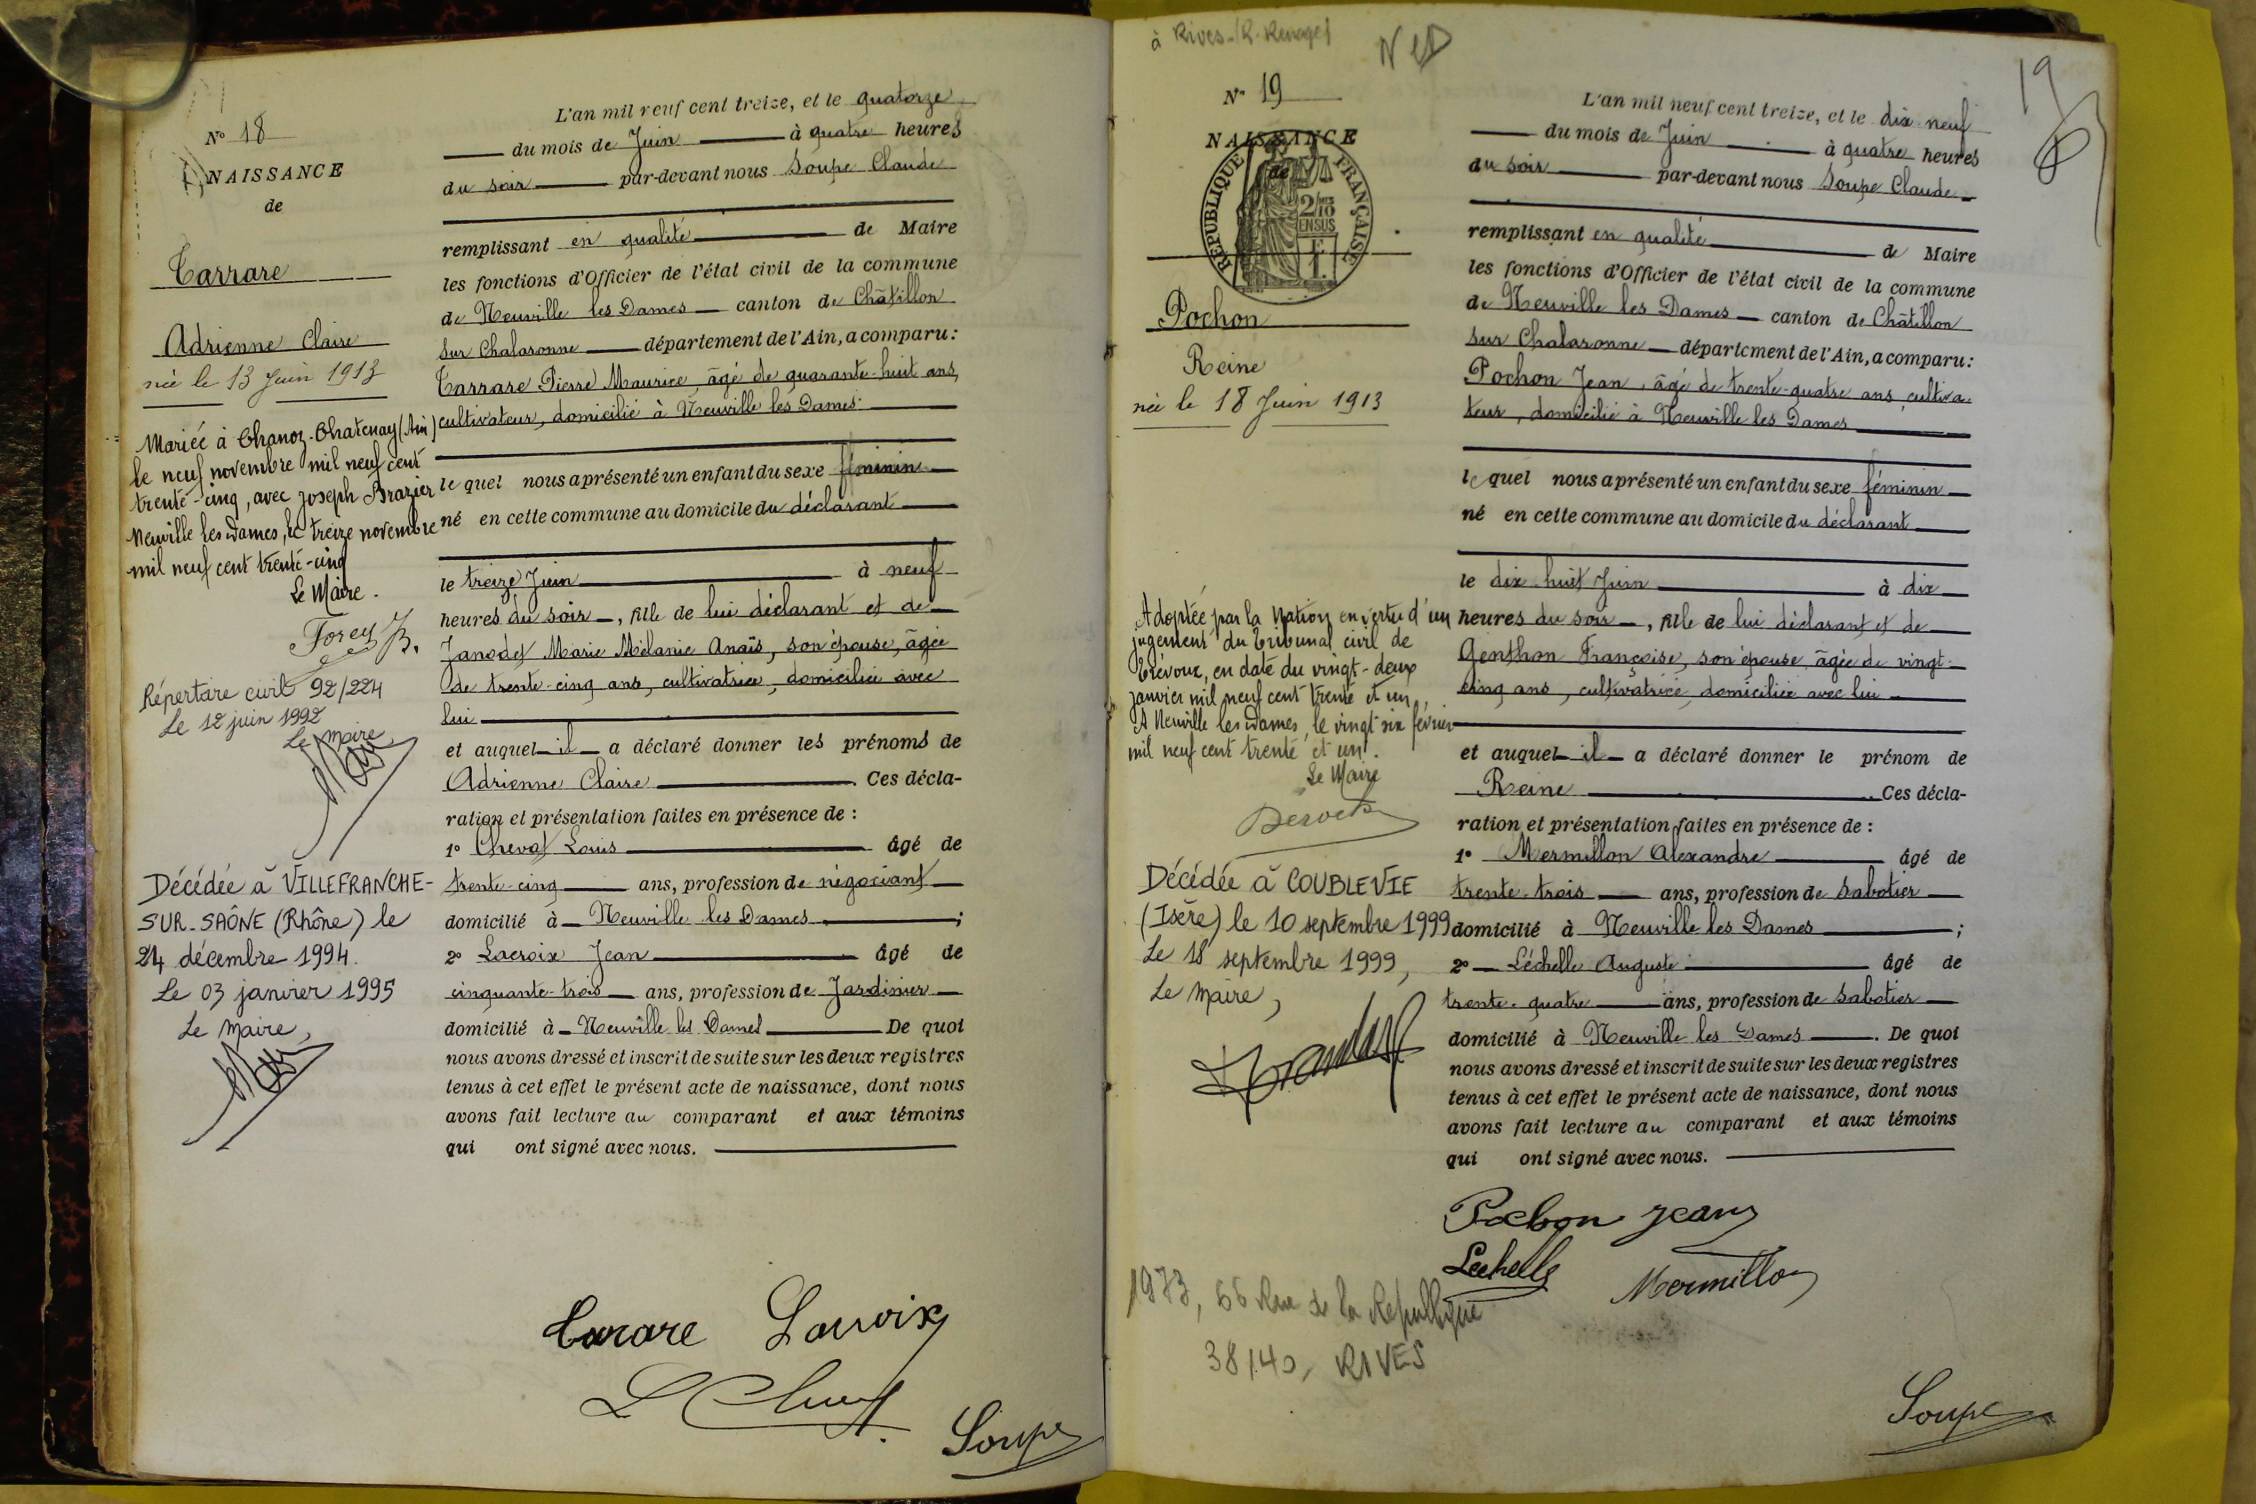 N° 18
NAISSANCE
de
Carrare
Adrienne Claire
née le 13 Juin 1913
Mariée à Chanoz-Chatenay (Ain)
le neuf novembre mil neuf cent
trente-cinq, avec Joseph Brazier
Neuville les Dames, le treize novembre
mil neuf cent trente-cinq
Le Maire.
Répertoire civil 92/224
Le 12 juin 1992
Le maire
Décédée à VILLEFRANCHE-
SUR-SAÔNE (Rhône) le
24 décembre 1994.
Le 03 janvier 1995
Le Maire,
L'an mil neuf cent treize, et le quatorze
du mois de Juin à quatre heures
du soir par-devant nous Soupe Claude
remplissant en qualité de Maire
les fonctions d'Officier de l'état civil de la commune
de Neuville les Dames canton de Châtillon
sur Chalaronne département de l'Ain, a comparu:
Carrare Pierre Maurice, âgé de quarante-huit ans,
cultivateur, domicilié à Neuville les Dames
le quel nous a présenté un enfant du sexe féminin
né en cette commune au domicile du déclarant
le treize Juin à neuf
heures du soir, fille de lui déclarant et de
Janodet Marie Mélanie Anaïs, son épouse, âgée
de trente-cinq ans, cultivatrice, domiciliée avec
lui
et auquel il a déclaré donner les prénoms de
Adrienne Claire. Ces décla-
ration et présentation faites en présence de :
1° Cheval Louis âgé de
trente-cinq ans, profession de négociant
domicilié à Neuville les Dames ;
2° Lacroix Jean âgé de
cinquante-trois ans, profession de Jardinier
domicilié à Neuville les Dames De quoi
nous avons dressé et inscrit de suite sur les deux registres
tenus à cet effet le présent acte de naissance, dont nous
avons fait lecture au comparant et aux témoins
qui ont signé avec nous.
Carrare Lacroix
Soupe
à Rives-(R. Renage)
N° 19
NAISSANCE
de
RÉPUBLIQUE FRANÇAISE
2/10
EN SUS
Pochon
Reine
née le 18 Juin 1913
Adoptée par la Nation en vertu d'un
jugement du Tribunal civil de
Trévoux, en date du vingt-deux
janvier mil neuf cent trente et un,
A Neuville les Dames, le vingt six février
mil neuf cent trente et un.
Le Maire
Décédée à COUBLEVIE
(Isère) le 10 septembre 1999
Le 18 septembre 1999,
Le Maire,
19
L'an mil neuf cent treize, et le dix-neuf
du mois de Juin à quatre heures
du soir par-devant nous Soupe Claude
remplissant en qualité de Maire
les fonctions d'Officier de l'état civil de la commune
de Neuville les Dames canton de Châtillon
sur Chalaronne département de l'Ain, a comparu:
Pochon Jean, âgé de trente-quatre ans, cultiva-
teur, domicilié à Neuville les Dames
le quel nous a présenté un enfant du sexe féminin
né en cette commune au domicile du déclarant
le dix-huit Juin à dix
heures du soir, fille de lui déclarant et de
Genthon Françoise, son épouse, âgée de vingt-
cinq ans, cultivatrice, domiciliée avec lui
et auquel il a déclaré donner le prénom de
Reine. Ces décla-
ration et présentation faites en présence de :
1° Mermillon Alexandre âgé de
trente-trois ans, profession de sabotier
domicilié à Neuville les Dames ;
2° Léchelle Auguste âgé de
trente-quatre ans, profession de sabotier
domicilié à Neuville les Dames. De quoi
nous avons dressé et inscrit de suite sur les deux registres
tenus à cet effet le présent acte de naissance, dont nous
avons fait lecture au comparant et aux témoins
qui ont signé avec nous.
Pochon Jean
Lechelle Mermillon
1973, 66 Rue de la République
38140, RIVES
Soupe